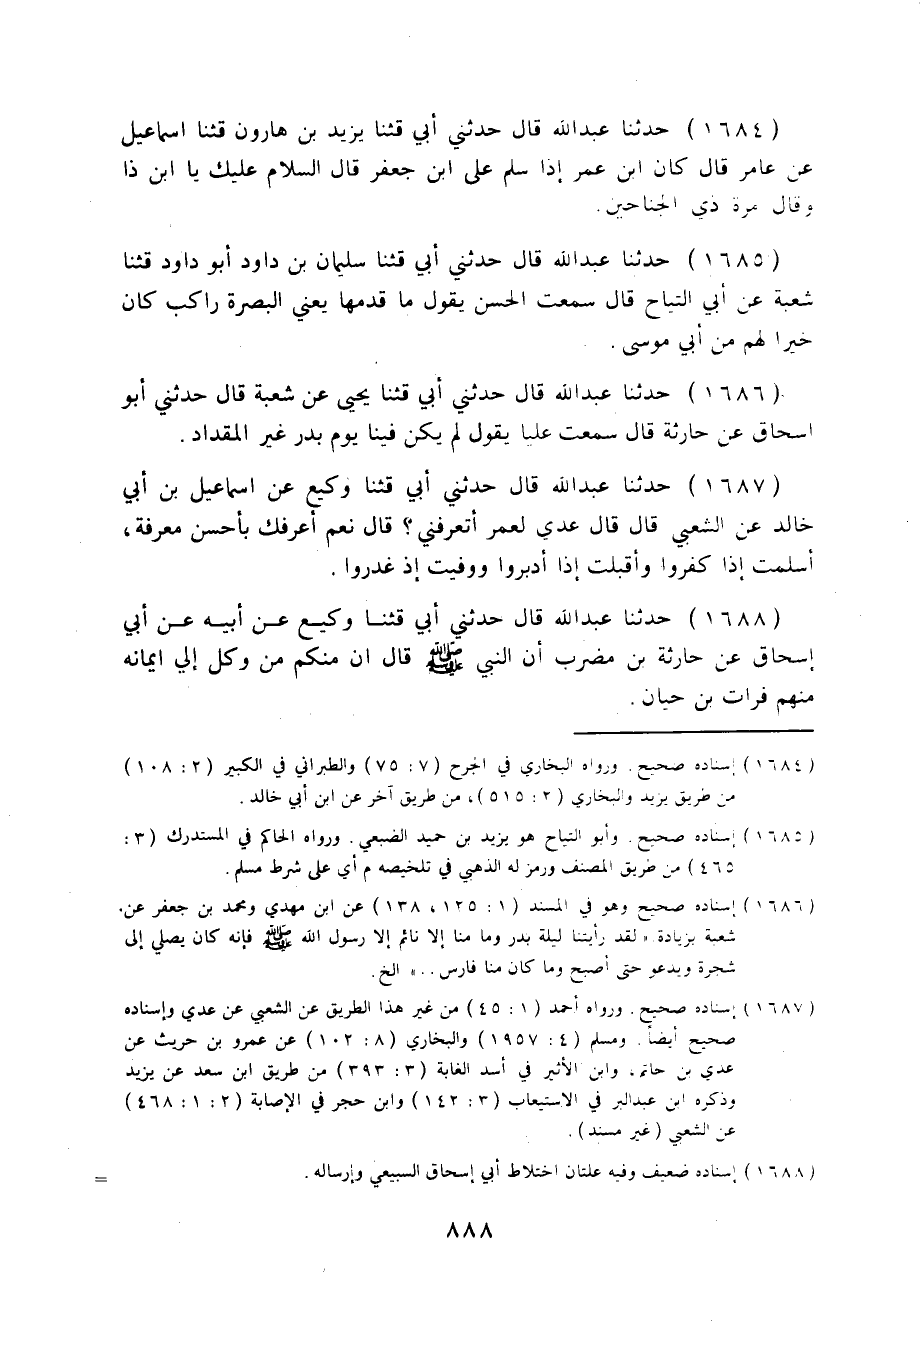 (١٦٨٤) حدثنا عبدالله قال حدثني أبي قثنا يزيد بن هارون قثنا اسماعيل
عن عامر قال كان ابن عمر إذا سلم على ابن جعفر قال السلام عليك يا ابن ذا
وقال مرة ذي الجناحين.
(١٦٨٥) حدثنا عبدالله قال حدثني أبي قثنا سليمان بن داود أبو داود قثنا
شعبة عن أبي التياح قال سمعت الحسن يقول ما قدمها يعني البصرة راكب كان
خيرا لهم من أبي موسى.
(١٦٨٦) حدثنا عبدالله قال حدثني أبي قثنا يحيى عن شعبة قال حدثني أبو
اسحاق عن حارثة قال سمعت عليا يقول لم يكن فينا يوم بدر غير المقداد.
(١٦٨٧) حدثنا عبدالله قال حدثني أبي قثنا وكيع عن اسماعيل بن أبي
خالد عن الشعبي قال قال عدي لعمر أتعرفني؟ قال نعم أعرفك بأحسن معرفة،
أسلمت إذا كفروا وأقبلت إذا أدبروا ووفيت إذ غدروا.
(١٦٨٨) حدثنا عبدالله قال حدثني أبي قثنا وكيع عن أبيه عن أبي
إسحاق عن حارثة بن مضرب أن النبي ﷺ قال ان منكم من وكل إلي ايمانه
منهم فرات بن حيان.
(١٦٨٤) إسناده صحيح. ورواه البخاري في الجرح (٧: ٧٥) والطبراني في الكبير (٢: ١٠٨)
من طريق يزيد والبخاري (٢: ٥١٥)، من طريق آخر عن ابن أبي خالد.
(١٦٨٥) إسناده صحيح. وأبو التياح هو يزيد بن حميد الضبعي. ورواه الحاكم في المستدرك (٣:
٤٦٥) من طريق المصنف ورمز له الذهبي في تلخيصه م أي على شرط مسلم.
(١٦٨٦) إسناده صحيح وهو في المسند (١: ١٢٥، ١٣٨) عن ابن مهدي ومحمد بن جعفر عن
شعبة بزيادة «لقد رأيتنا ليلة بدر وما منا إلا نائم إلا رسول الله ﷺ فإنه كان يصلي إلى
شجرة ويدعو حتى أصبح وما كان منا فارس..» الخ.
(١٦٨٧) إسناده صحيح. ورواه أحمد (١: ٤٥) من غير هذا الطريق عن الشعبي عن عدي وإسناده
صحيح أيضاً. ومسلم (٤: ١٩٥٧) والبخاري (٨: ١٠٢) عن عمرو بن حريث عن
عدي بن حاتم، وابن الأثير في أسد الغابة (٣: ٣٩٣) من طريق ابن سعد عن يزيد
وذكره ابن عبدالبر في الاستيعاب (٣: ١٤٢) وابن حجر في الإصابة (٢: ١: ٤٦٨)
عن الشعبي (غير مسند).
(١٦٨٨) إسناده ضعيف وفيه علتان اختلاط أبي إسحاق السبيعي وإرساله. =
٨٨٨